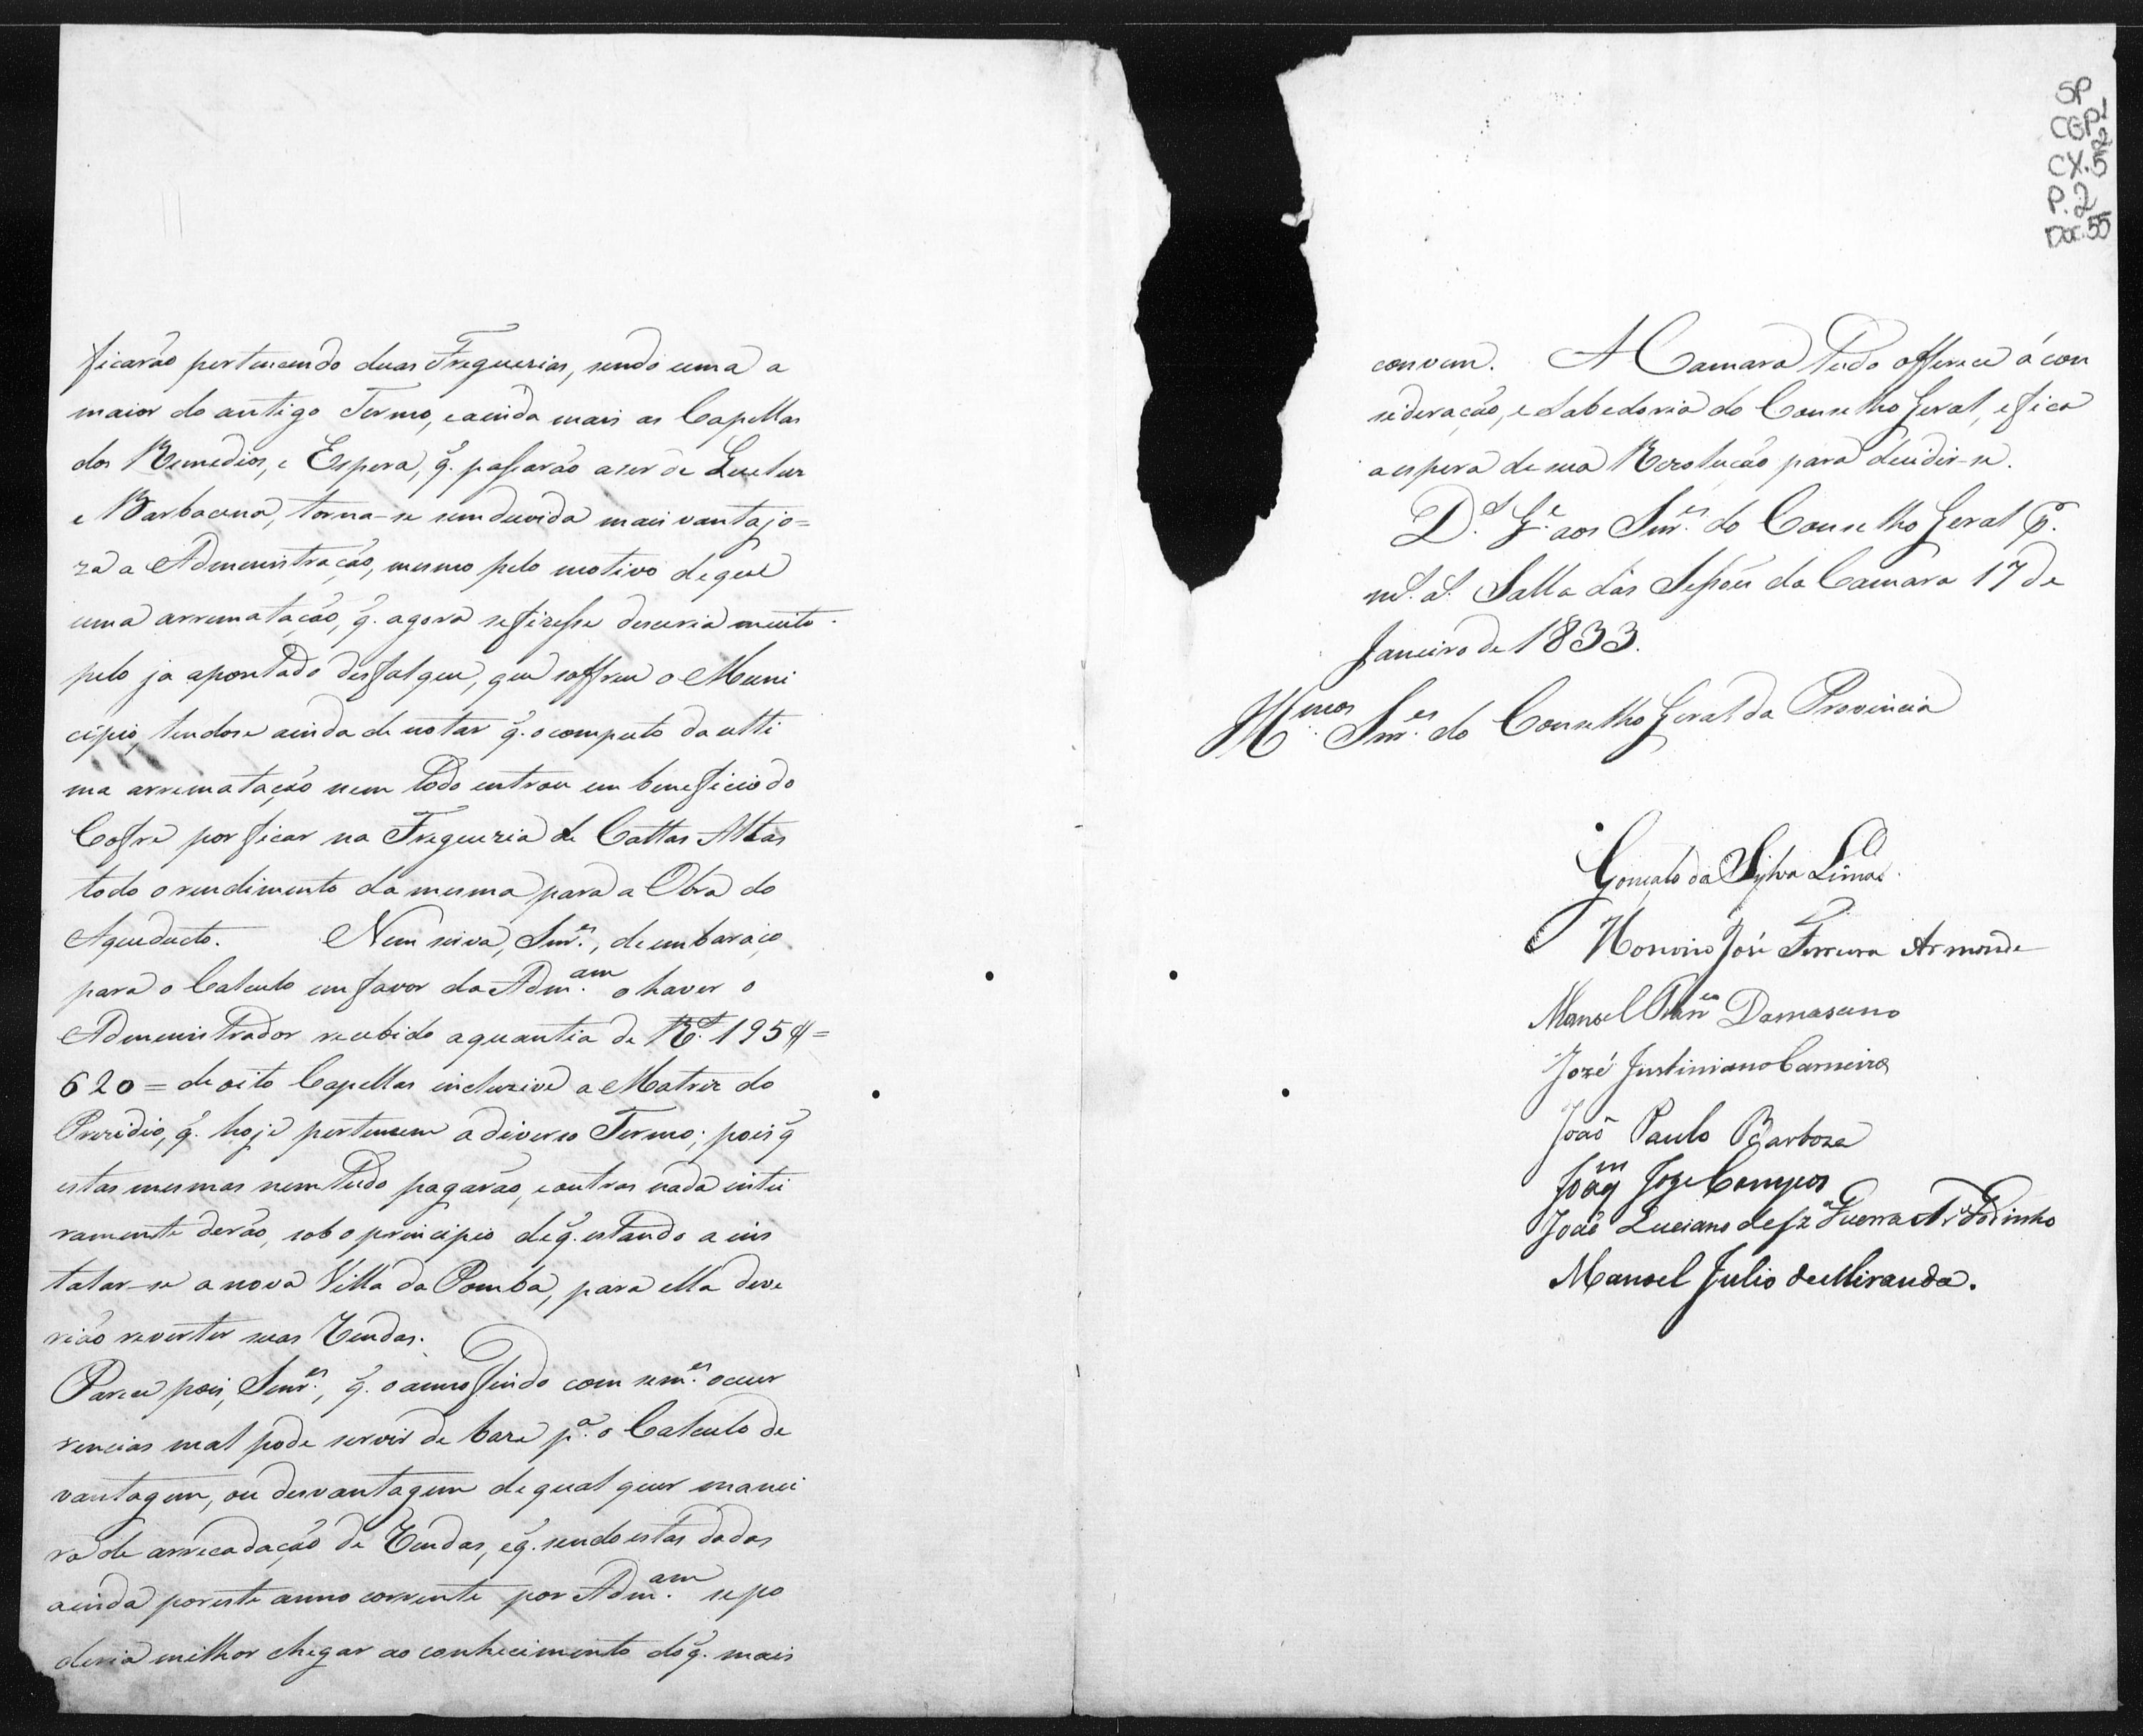 ficarão pertencendo duas Freguezias, sendo uma a
maior do antigo Termo, e ainda mais as Capellas
dos Remedios, e Espera, q̃. passarão a ser de Queluz
e Barbacena, torna-se sem duvida mais vantajo=
za a Administração, mesmo pelo motivo de que
uma arrematação, q̃. agora se fizesse desceria muito
pelo ja apontado desfalque, que soffreu o Muni
cipio, tendose ainda de notar q̃. o computo da ulti
ma arrematação nem todo entrou em beneficio do
Cofre por ficar na Freguezia de Cattas Altas
todo o rendimento da mesma para a Obra do
Aqueducto. Nem sirva, Snr.es, de embaraço
para o Calculo em favor da Adm.am o haver o
Administrador recebido a quantia de R.s 195$=
620= de oito Capellas incluzive a Matriz do
Prezidio, q̃. hoje pertencem a diverso Termo; pois q̃
estas mesmas nem tudo pagarão, e outras nada intei
ramente derão, sob o principio de q̃. estando a ins
talar-se a nova Villa da Pomba, para ella deve
rião reverter suas Rendas.
Parece pois, Snr.es, q̃. o anno findo com sem.es ocur
rencias mal pode servir de baze p.a o Calculo de
vantagem, ou desvantagem de qualquer manei
ra de arrecadação de Rendas, e q̃. sendo estas dadas
ainda por este anno corrente por Adm.am se po
deria milhor chegar ao conhecimento do q̃. mais
SP
CGP1
2
CX.5
P.2
Doc.55
convem. A Camara tudo offerece á con
sideração, e Sabedoria do Conselho Geral, e fica
a espera de sua Rezolução para decidir-se.
D.s G.e aos Snr.es do Conselho Geral P.
m.s a.s Salla das Sessões da Camara 17 de
Janeiro de 1833.
Ill.mos Snr.es do Conselho Geral da Provincia
Gonçalo da Sylva Lima
Honorio José Ferreira Armonde
Manoel Damasceno
Jozé Justiniano Carneiro
João Paulo Barboza
Joaq.m Joze Campos
João Luciano de Sz.a Guerra Ar.o Godinho
Manoel Julio de Miranda.